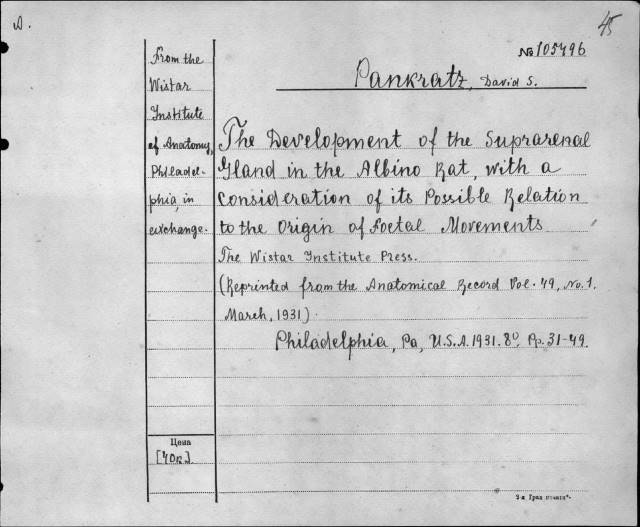 D.
45
№ 105796
Pankratz, David S.
From the
Wistar
Institute
of Anatomy,
Philadel-
phia, in
exchange.
The Development of the Suprarenal
Gland in the Albino Rat, with a
consideration of its Possible Relation
to the Origin of Foetal Movements
The Wistar Institute Press.
(Reprinted from the Anatomical Record Vol. 49, No. 1.
March, 1931)
Philadelphia, Pa, U.S.A. 1931. 8º. Pp. 31-49.
Цена
[40к.]